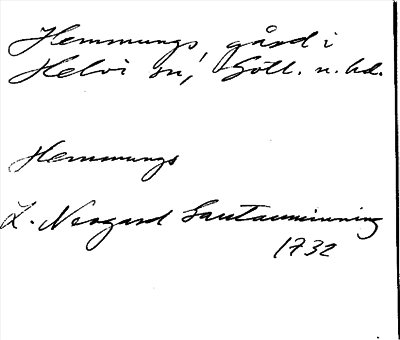 Hemmungs, gård i
Helvi sn, Gotl. n. hd.
Hemmungs
L. Neogard Gautauminning
1732